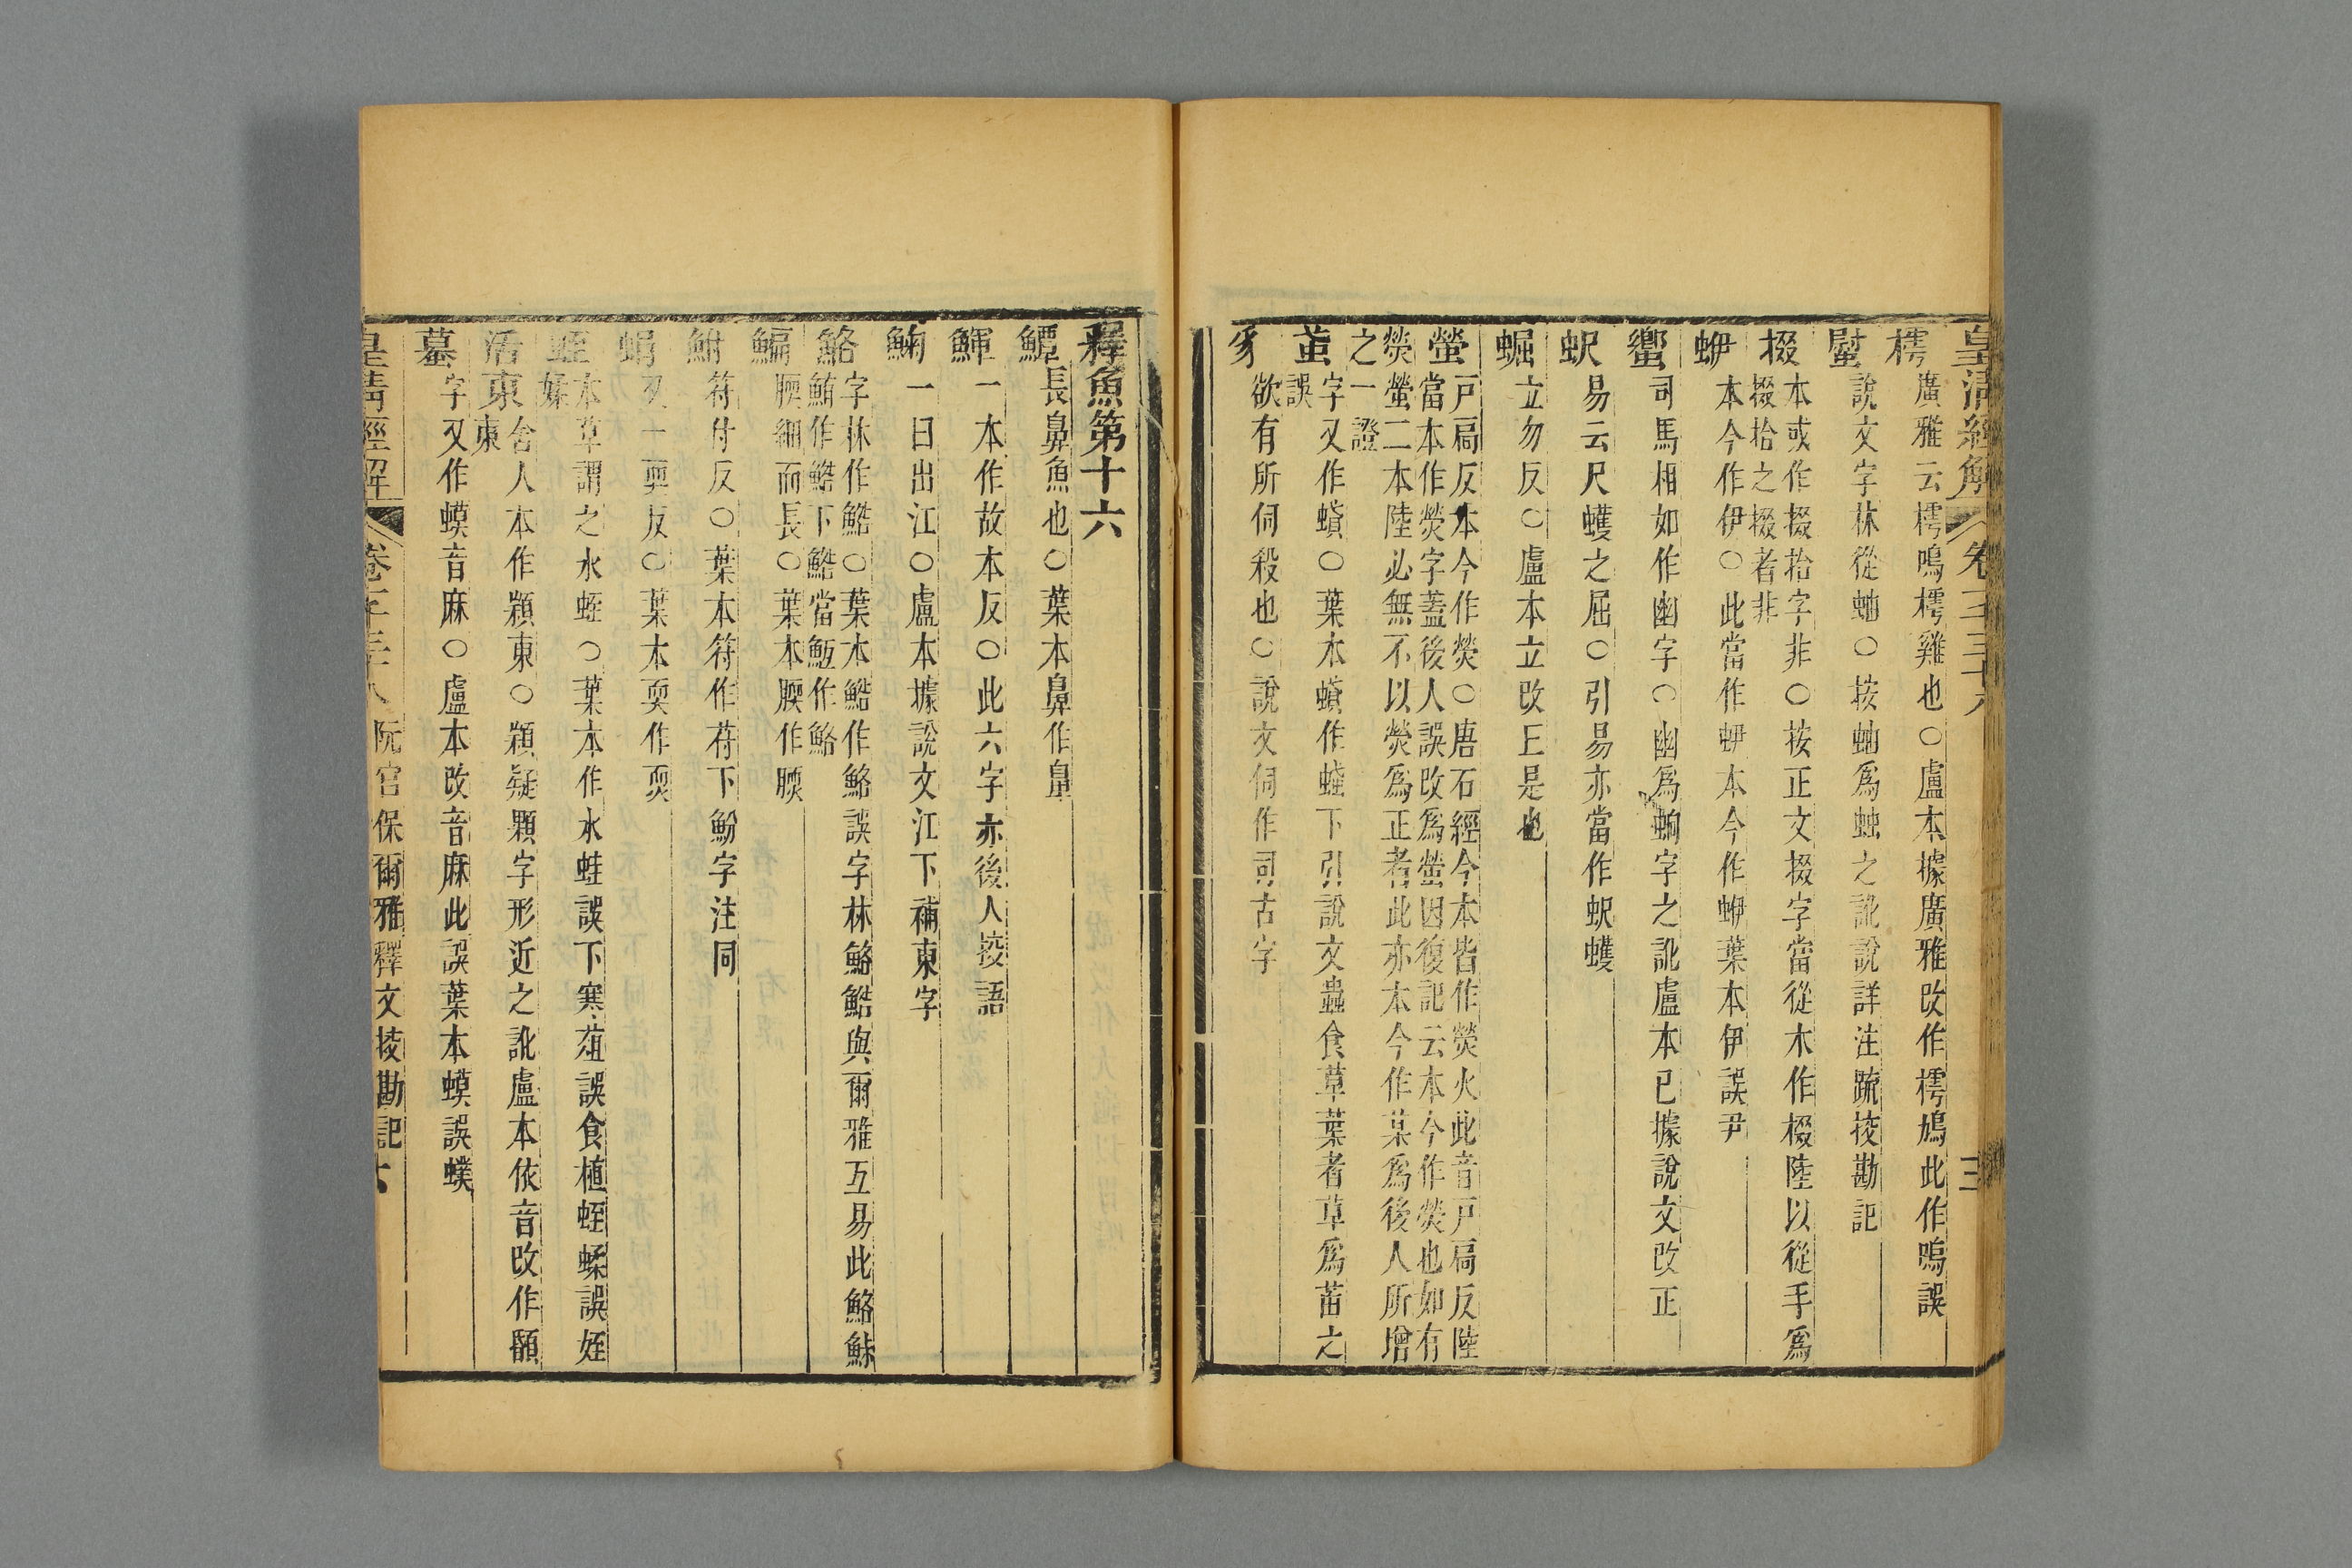 皇清經解 卷一千三十八 三
樗 廣雅云樗鳴樗雞也○盧本據廣雅改作樗鳩此作嗚誤
螱 說文字林從蚰○按蚰爲䖵之訛說詳注疏挍勘記
掇 本或作掇拾字非○按正文掇字當從木作棳陸以從手爲
掇拾之掇者非
蛜 本今作伊○此當作蛜本今作蛜葉本伊誤尹
蠁 司馬相如作幽字○幽爲蚼字之訛盧本已據說文改正
蚇 易云尺蠖之屈○引易亦當作蚇蠖
蝹 立勿反○盧本立改王是也
螢 戸扃反本今作熒○唐石經今本皆作熒火此音戸扃反陸
當本作熒字蓋後人誤改爲螢因復記云本今作熒也如有
熒螢二本陸必無不以熒爲正者此亦本今作某爲後人所增
之一證
蚩 字又作螆○葉本螆作蟘下引說文蟲食草葉者草爲苗之
誤
豸 欲有所伺殺也○說文伺作司古字
釋魚第十六
鱏 長鼻魚也○葉本鼻作臯
鯶 一本作故本反○此六字亦後人挍語
鮈 一曰出江○盧本據說文江下補東字
鮥 字林作鮚○葉本鮚作鮥誤字林鮥鮚與爾雅互易此鮥鮛
鮪作鮚下鮚當䱭作鮥
鯿 腝細而長○葉本腝作腝
鮒 符付反○葉本符作苻下魵字注同
蜎 又一耎反○葉本耎作耎
蛭 本草謂之水蛭○葉本作水蛙誤下寒葅誤食植蛭蝚誤姪
蝚
活東 舍人本作顆東○顆疑顆字形近之訛盧本依音改作顝
東
蟇 字又作蟆音麻○盧本改音麻此誤葉本蟆誤蟆
皇清經解 卷一千三十八 阮宮保爾雅釋文挍勘記 六